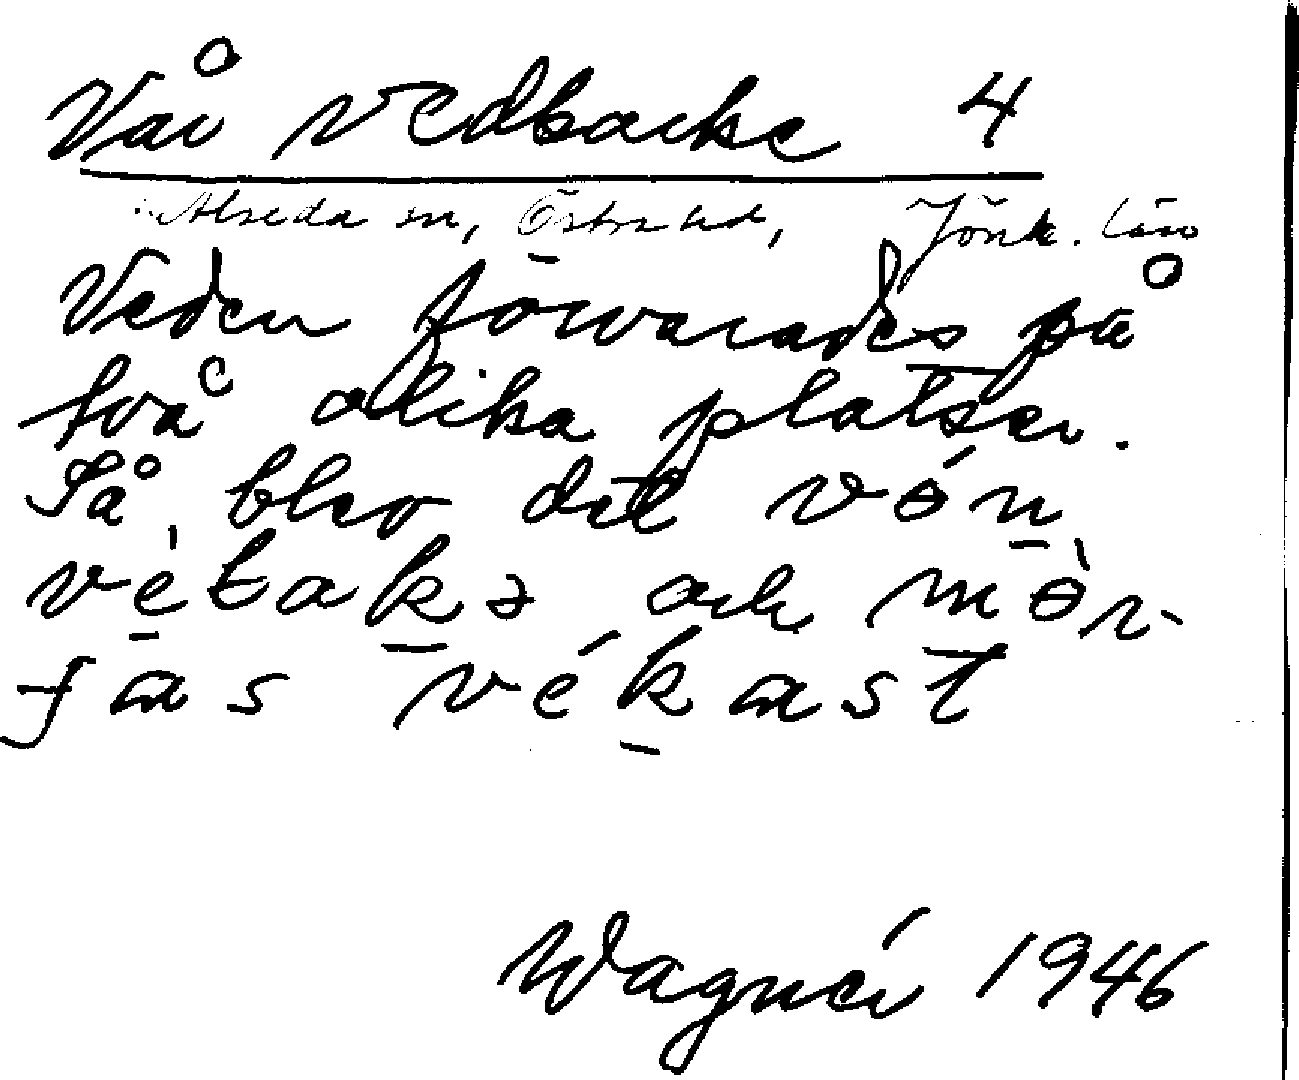 Vår vedbacke 4
Alseda sn, Östra hd, Jönk. län
Veden förvarades på
två olika platser.
Så blev det vɵ́n
vèbakə och mɵ̀r-
jas vékast
Wagnér 1946